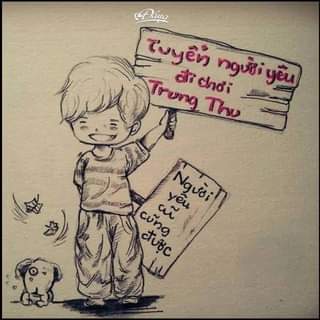 Tuyển người yêu
đi chơi
Trung Thu
Người
yêu
cũ
cũng
được